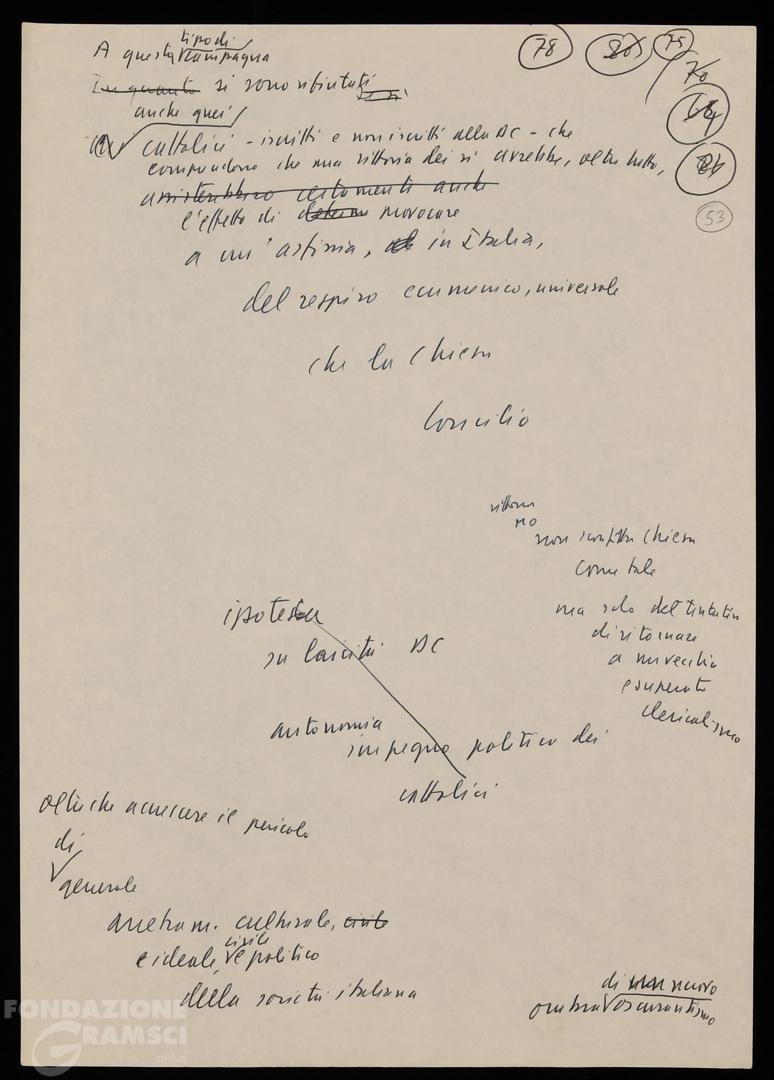 tipo di
A questa campagna
In quanto si sono rifiutati
anche quei
cattolici - iscritti e non iscritti alla DC - che
comprendono che una vittoria dei sì avrebbe, oltre tutto,
assisterebbero certamente anche
l'effetto di provocare
a un'asfissia, in Italia,
del respiro ecumenico, universale
che la Chiesa
Concilio
vittoria
no
non sconfitta Chiesa
come tale
ma solo del tentativo
di ritornare
a un vecchio
e superato
clericalismo
ipoteca
su laicità DC
autonomia
impegno politico dei
cattolici
oltre che accrescere il pericolo
di
generale
arretram. culturale, civile
civile
e ideale, e politico
della società italiana
di nuovo
ombra oscurantismo
78
75
70
53
FONDAZIONE
GRAMSCI
onlus